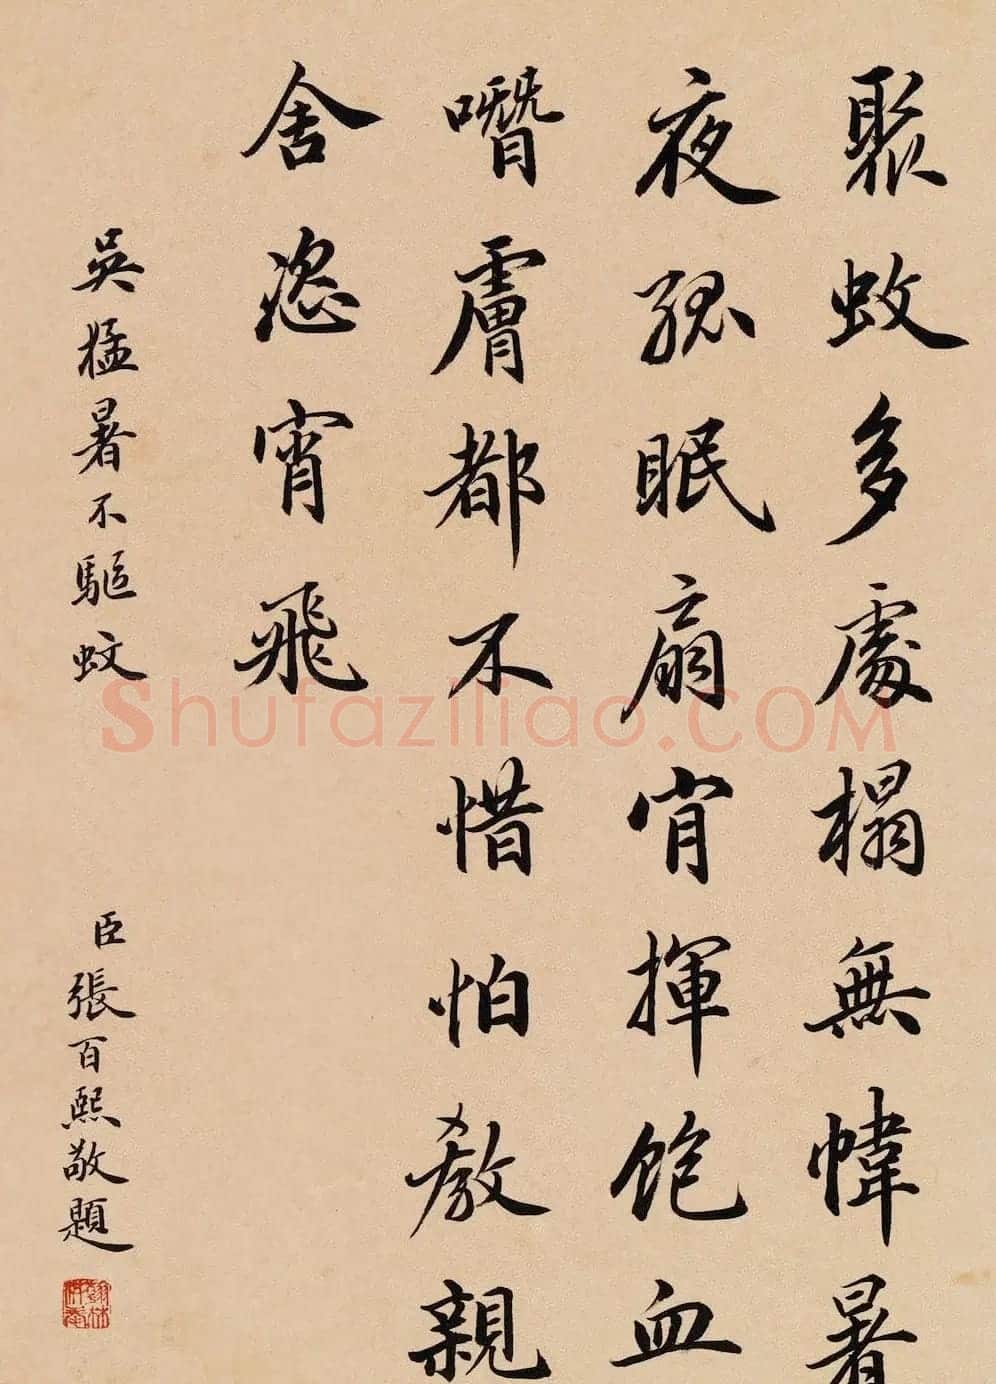 聚蚊多處榻無幃暑
夜孤眠扇肯揮飽血
噆膚都不惜怕教親
舍恣宵飛
吳猛暑不驅蚊
臣張百熙敬題
Shufaziliao.COM